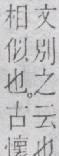 文別之云也
相似也。古懷